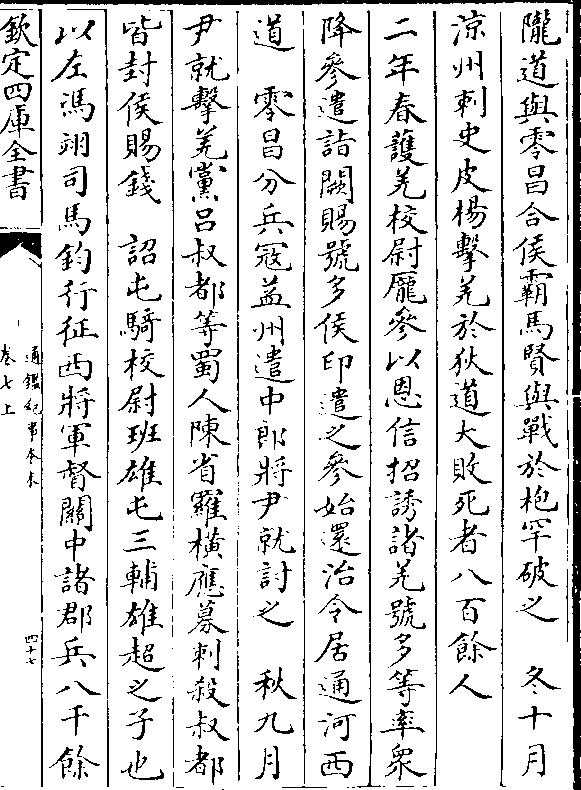 隴道與零昌合侯霸馬賢與戰於枹罕破之　冬十月
涼州刺史皮楊擊羌於狄道大敗死者八百餘人
二年春護羌校尉龐參以恩信招誘諸羌號多等率衆
降參遣詣闕賜號多侯印遣之參始還治令居通河西
道　零昌分兵冦益州遣中郎將尹就討之　秋九月
尹就擊羌黨呂叔都等蜀人陳省羅横應募刺殺叔都
皆封侯賜錢　詔屯騎校尉班雄屯三輔雄超之子也
以左馮翊司馬鈞行征西將軍督關中諸郡兵八千餘
欽定四庫全書
通鑑紀事本末
卷七上
四十七